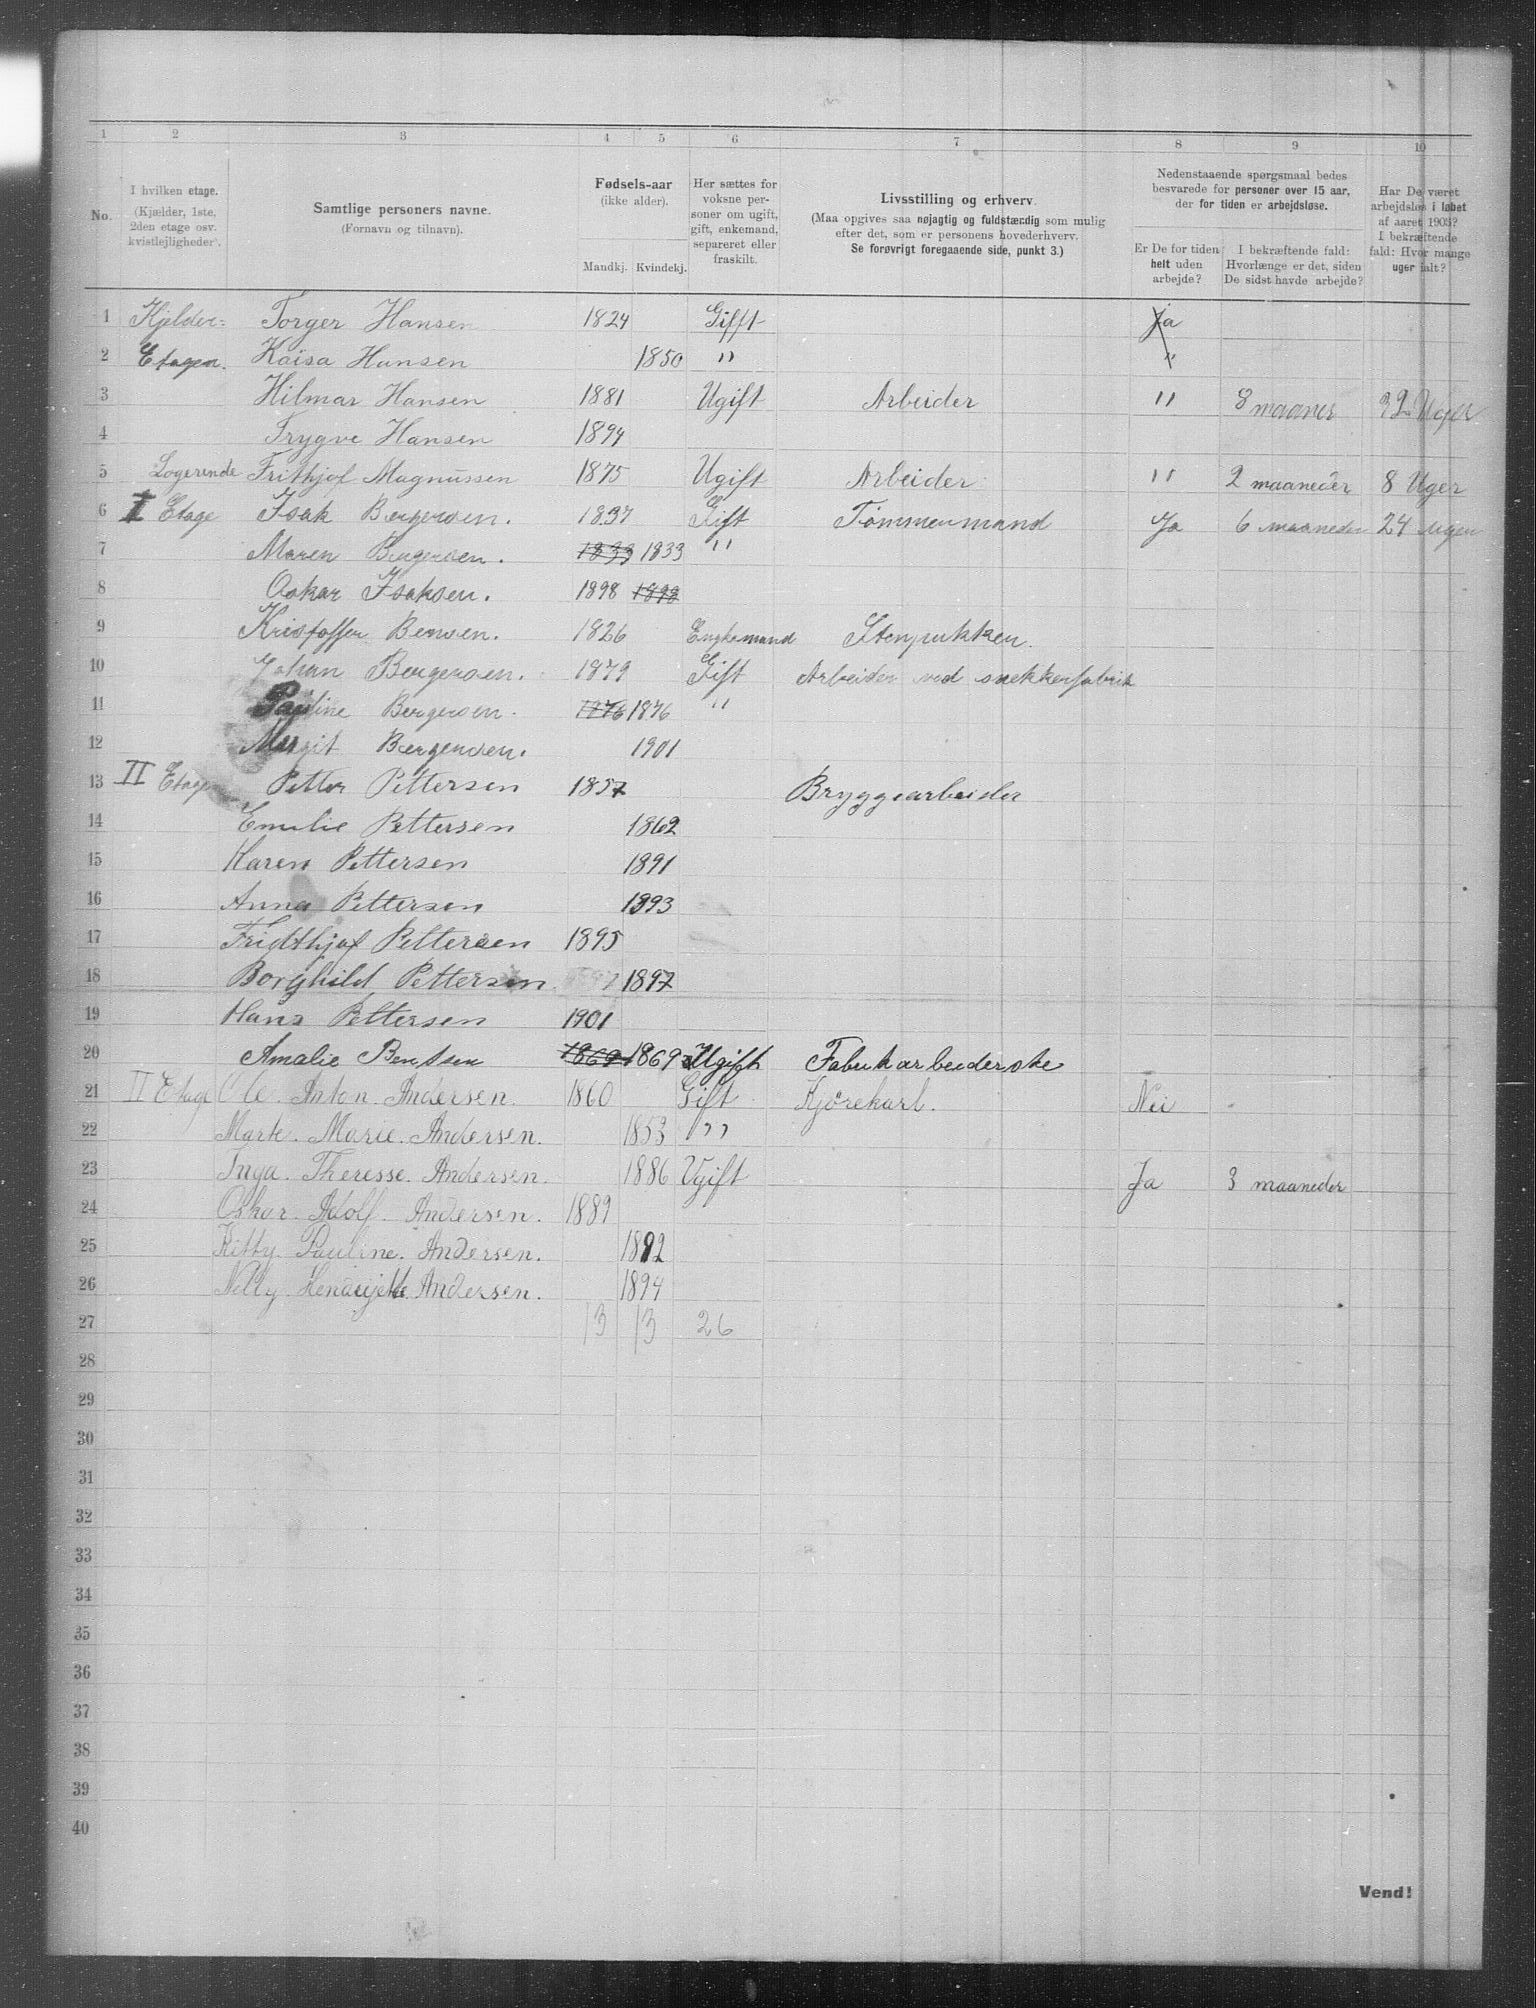 1 2 3 4 5 6 7 8 9 10
No.
I hvilken etage.
(Kjælder, 1ste,
2den etage osv.
kvistlejligheder).
Samtlige personers navne.
(Fornavn og tilnavn).
Fødsels-aar
(ikke alder).
Mandkj. Kvindekj.
Her sættes for
voksne per-
soner om ugift,
gift, enkemand,
separeret eller
fraskilt.
Livsstilling og erhverv.
(Maa opgives saa nøjagtig og fuldstændig som mulig
efter det, som er personens hovederhverv.
Se forøvrigt foregaaende side, punkt 3.)
Nedenstaaende spørgsmaal bedes
besvarede for personer over 15 aar,
der for tiden er arbejdsløse.
Er De for tiden
helt uden
arbejde?
I bekræftende fald:
Hvorlænge er det, siden
De sidst havde arbejde?
Har De været
arbejdsløs i løbet
af aaret 1903?
I bekræftende
fald: Hvor mange
uger ialt?
1 Kjelder= Torger Hansen 1824 Gifft Ja
2 Etagen. Kaisa Hansen 1850 " "
3 Hilmar Hansen 1881 Ugift Arbeider " 8 maaner 32 Uger
4 Trygve Hansen 1894
5 Logerende Frithjof Magnussen 1875 Ugift Arbeider " 2 maaneder 8 Uger
6 I Etage Isak Bergersen. 1837 Gift Tømmermand Ja 6 maaneder 24 Uger
7 Maren Bergersen. 1833 1833 "
8 Oskar Isaksen. 1898 1898
9 Kristoffer Bensen. 1826 Enkemand Stenpukker.
10 Johan Bergersen. 1879 Gift Arbeider ved snekkerfabrik
11 Pauline Bergersen. 1876 1876 "
12 Margit Bergersen. 1901
13 II Etage Petter Pettersen 1857 Bryggearbeider
14 Emilie Pettersen 1862
15 Karen Pettersen 1891
16 Anna Pettersen 1893
17 Fridthjof Pettersen 1895
18 Borghild Pettersen 1897
19 Hans Pettersen 1901
20 Amalie Bentsen 1869 1869 Ugift Fabrikarbeiderske
21 II Etage Ole. Anton. Andersen. 1860 Gift Kjørekarl. Nei
22 Marte. Marie. Andersen. 1853 "
23 Inga. Theresse. Andersen. 1886 Ugift Ja 3 maaneder
24 Oskar. Adolf. Andersen. 1889
25 Kitty. Pauline. Andersen. 1892
26 Nelly. Hendrjette Andersen. 1894
27 13 13 26
28
29
30
31
32
33
34
35
36
37
38
39
40
Vend!